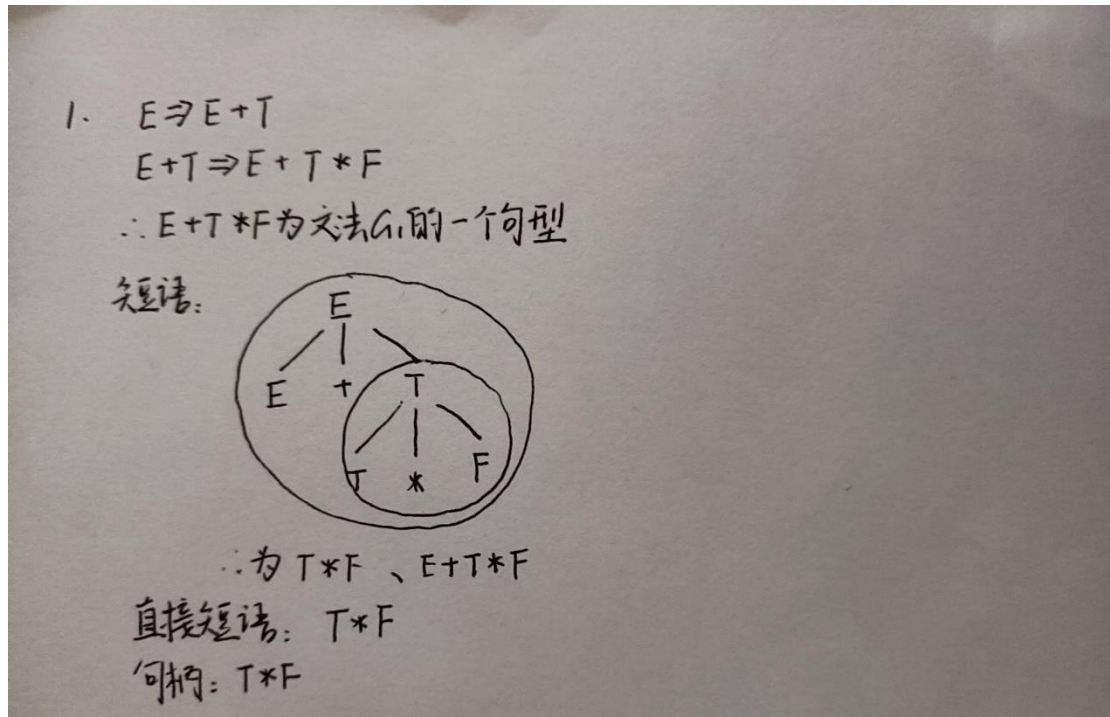 1. E⇒E+T
E+T⇒E+T*F
∴E+T*F为文法G₁的一个句型
短语:
E
E + T
T * F
∴为 T*F 、E+T*F
直接短语: T*F
句柄: T*F